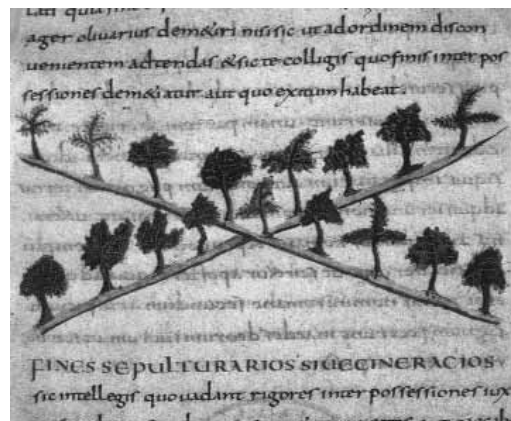 ager oliuarius demetiri nisi sic ut ad ordinem discon
uenientem adtendas & sic te colligis quo finis inter pos
sessiones dem&iatur aut quo exitum habeat.
FINES SEPULTURARIOS SIUE CINERACIOS
sic intellegis quo uadant rigores inter possessiones iux